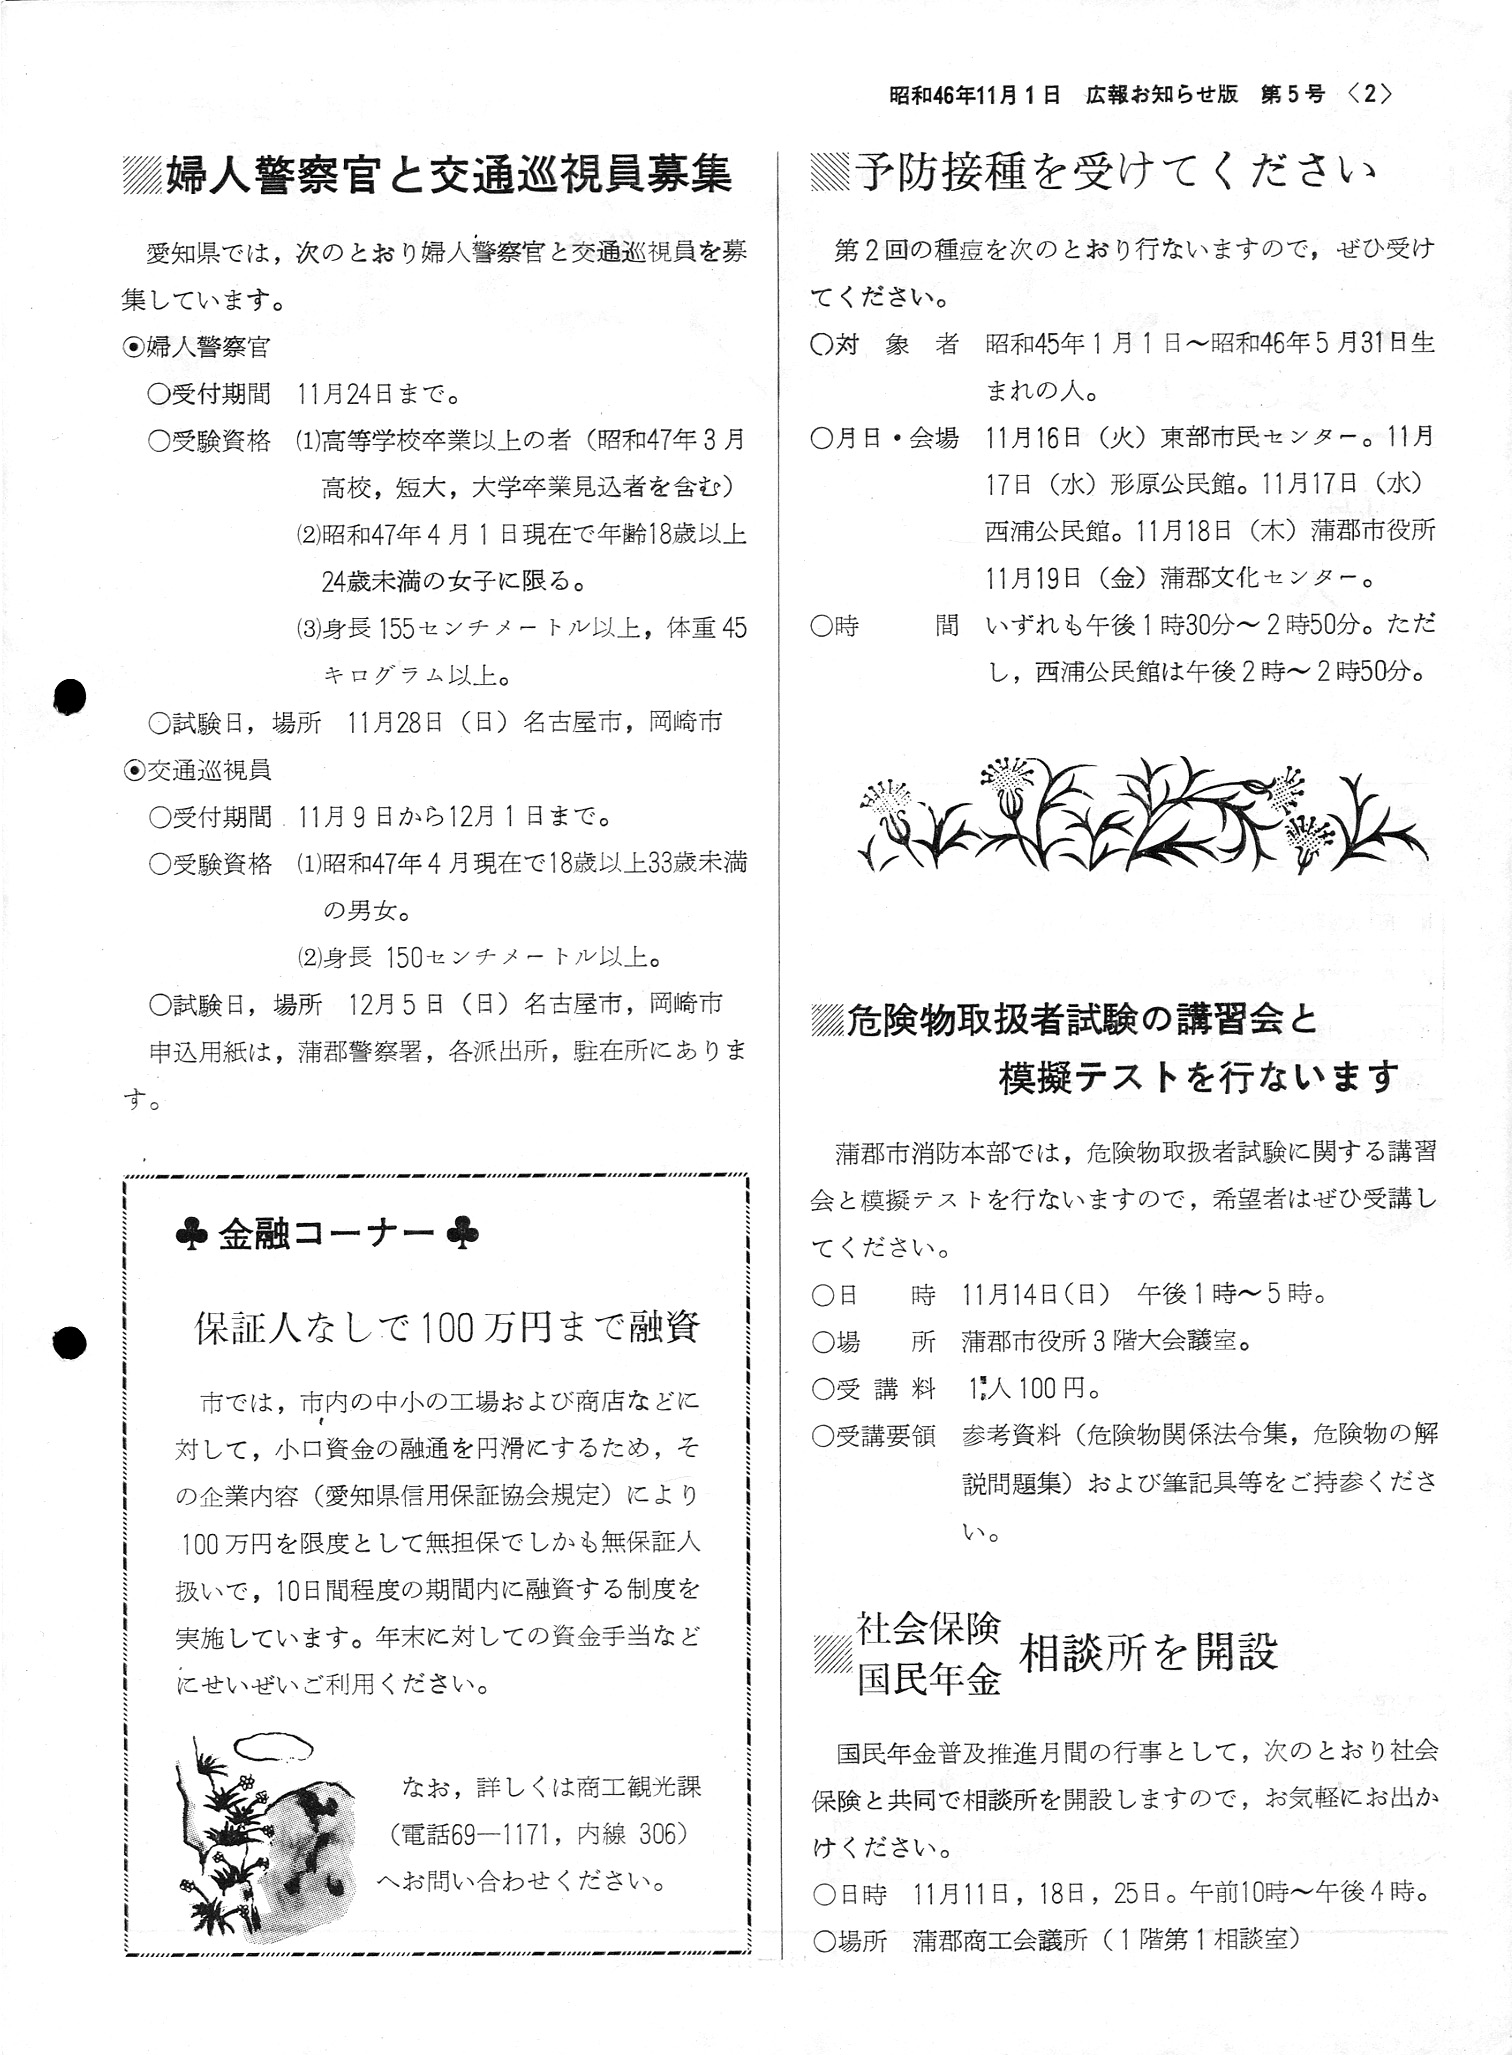 昭和46年11月1日　広報お知らせ版　第5号　〈2〉
婦人警察官と交通巡視員募集
愛知県では，次のとおり婦人警察官と交通巡視員を募
集しています。
◉婦人警察官
○受付期間　11月24日まで。
○受験資格　⑴高等学校卒業以上の者（昭和47年3月
高校，短大，大学卒業見込者を含む）
⑵昭和47年4月1日現在で年齢18歳以上
24歳未満の女子に限る。
⑶身長155センチメートル以上，体重45
キログラム以上。
○試験日，場所　11月28日（日）名古屋市，岡崎市
◉交通巡視員
○受付期間　11月9日から12月1日まで。
○受験資格　⑴昭和47年4月現在で18歳以上33歳未満
の男女。
⑵身長150センチメートル以上。
○試験日，場所　12月5日（日）名古屋市，岡崎市
申込用紙は，蒲郡警察署，各派出所，駐在所にありま
す。
♣金融コーナー♣
保証人なしで100万円まで融資
市では，市内の中小の工場および商店などに
対して，小口資金の融通を円滑にするため，そ
の企業内容（愛知県信用保証協会規定）により
100万円を限度として無担保でしかも無保証人
扱いで，10日間程度の期間内に融資する制度を
実施しています。年末に対しての資金手当など
にせいぜいご利用ください。
なお，詳しくは商工観光課
（電話69—1171，内線306）
へお問い合わせください。
予防接種を受けてください
第2回の種痘を次のとおり行ないますので，ぜひ受け
てください。
○対　象　者　昭和45年1月1日～昭和46年5月31日生
まれの人。
○月日・会場　11月16日（火）東部市民センター。11月
17日（水）形原公民館。11月17日（水）
西浦公民館。11月18日（木）蒲郡市役所
11月19日（金）蒲郡文化センター。
○時　　　間　いずれも午後1時30分～2時50分。ただ
し，西浦公民館は午後2時～2時50分。
危険物取扱者試験の講習会と
模擬テストを行ないます
蒲郡市消防本部では，危険物取扱者試験に関する講習
会と模擬テストを行ないますので，希望者はぜひ受講し
てください。
○日　　時　11月14日（日）　午後1時～5時。
○場　　所　蒲郡市役所3階大会議室。
○受 講 料　1人100円。
○受講要領　参考資料（危険物関係法令集，危険物の解
説問題集）および筆記具等をご持参くださ
い。
社会保険
国民年金　相談所を開設
国民年金普及推進月間の行事として，次のとおり社会
保険と共同で相談所を開設しますので，お気軽にお出か
けください。
○日時　11月11日，18日，25日。午前10時～午後4時。
○場所　蒲郡商工会議所（1階第1相談室）